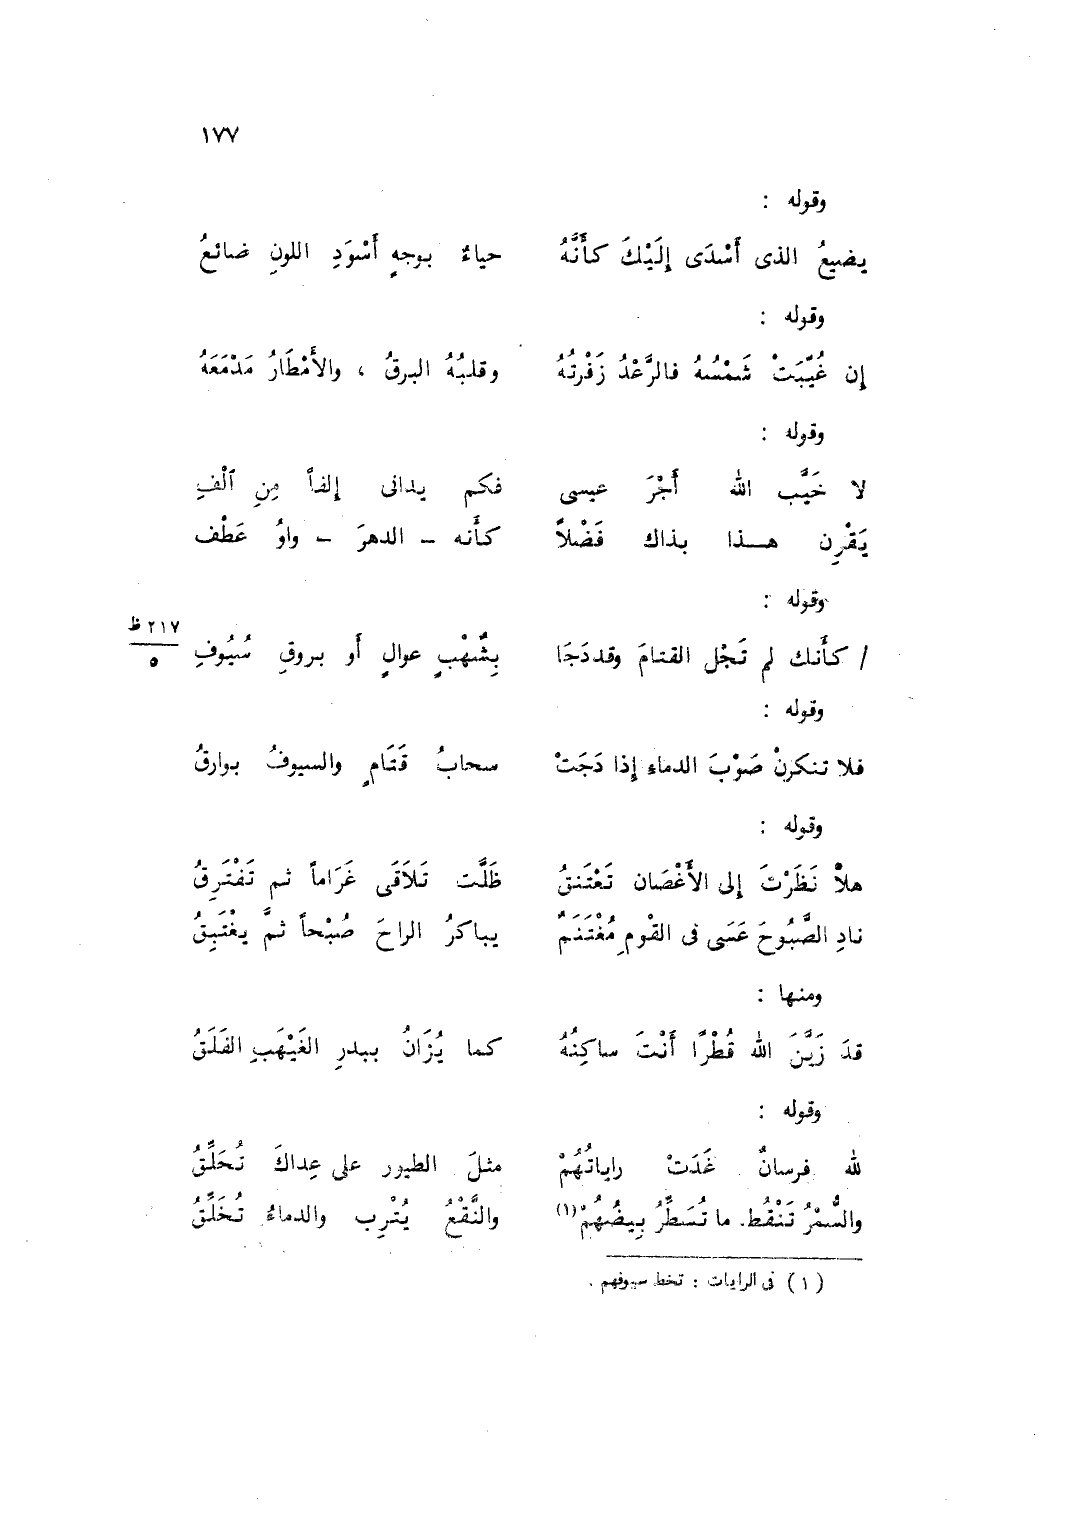 ١٧٧
وقوله :
يضيعُ الذى أَسْدَى إِلَيْكَ كأَنَّهُ حياءٌ بوجهٍ أَسْوَدِ اللونِ ضائعُ
وقوله :
إن غُيِّبَتْ شَمْسُهُ فالرَّعْدُ زَفْرتُهُ وقلبُهُ البرقُ ، والأَمْطَارُ مَدْمَعَهُ
وقوله :
لا خَيَّب الله أَجْرَ عيسى فكم يدانى إلفاً مِنِ ٱلْفِ
يَقْرِن هـذا بذاك فَضْلاً كأَنه – الدهرَ – واوُ عَطْف
وقوله :
/ كأَنك لم تَجْل القتامَ وقددَجَا بِشُهْبٍ عوالٍ أو بروقِ سُيُوفِ
٢١٧ ظ
٥
وقوله :
فلا تنكرنْ صَوْبَ الدماءِ إذا دَجَتْ سحابُ قَتَامٍ والسيوفُ بوارقُ
وقوله :
هلاَّ نَظَرْتَ إلى الأَغْصَان تَعْتَنقُ ظَلَّت تَلَاقَى غَرَاماً ثم تَفْتَرِقُ
نادِ الصَّبُوحَ عَسَى فى القوْمِ مُغْتَنَمٌ يباكرُ الراحَ صُبْحاً ثمَّ يغْتَبِقُ
ومنها :
قدَ زَيَّنَ الله قُطْرًا أَنْتَ ساكِنُهُ كما يُزَانُ ببدرِ الغَيْهَبِ الفَلَقُ
وقوله :
لله فرسانٌ غَدَتْ راياتُهُمْ مثلَ الطيور على عِداكَ تُحَلِّقُ
والسُّمْرُ تَنْقُط ما تُسَطِّرُ بِيضُهُمْ(١) والنَّقْعُ يُتْرِب والدماءُ تُخَلِّقُ
(١) فى الرايات : تخط سيوفهم .